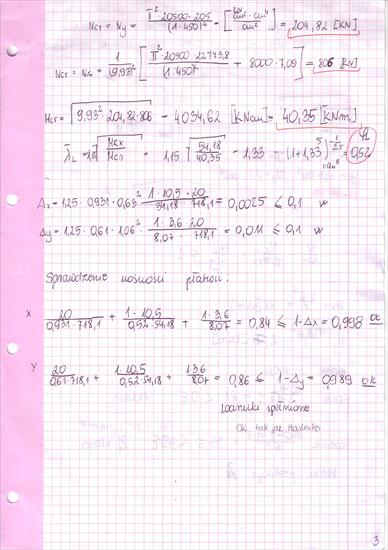 Ncr = Ny = π² · 20500 · 205 / (1 · 450)² = [kN/cm² · cm⁴ / cm²] = 204,82 [kN]
Ncr = Nz = 1/(9,93)² [π² · 20500 · 22773,8 / (1 · 450)² + 8000 · 7,09] = 806 [kN]
Mcr = √(9,93² · 204,82 · 806) = 4034,62 [kNcm] = 40,35 [kNm]
λ̄L = 1,15 √(MRx / Mcr) = 1,15 √(54,18 / 40,35) = 1,33 → (1 + 1,33⁵)^(-1/2,5) = 0,52 φL
"a₀"
Δx = 1,25 · 0,931 · 0,63² · 1 · 10,5 · 20 / 54,18 · 718,1 = 0,0025 ≤ 0,1 w
Δy = 1,25 · 0,61 · 1,06² · 1 · 3,6 · 20 / 8,07 · 718,1 = 0,011 ≤ 0,1 w
Sprawdzenie nośności płatwi:
X 20 / 0,931 · 718,1 + 1 · 10,5 / 0,52 · 54,18 + 1 · 3,6 / 8,07 = 0,84 ≤ 1 - Δx = 0,998 ok
Y 20 / 0,61 · 718,1 + 1 · 10,5 / 0,52 · 54,18 + 1 · 3,6 / 8,07 = 0,86 ≤ 1 - Δy = 0,989 ok
Warunki spełnione
Ok. tak jak
3